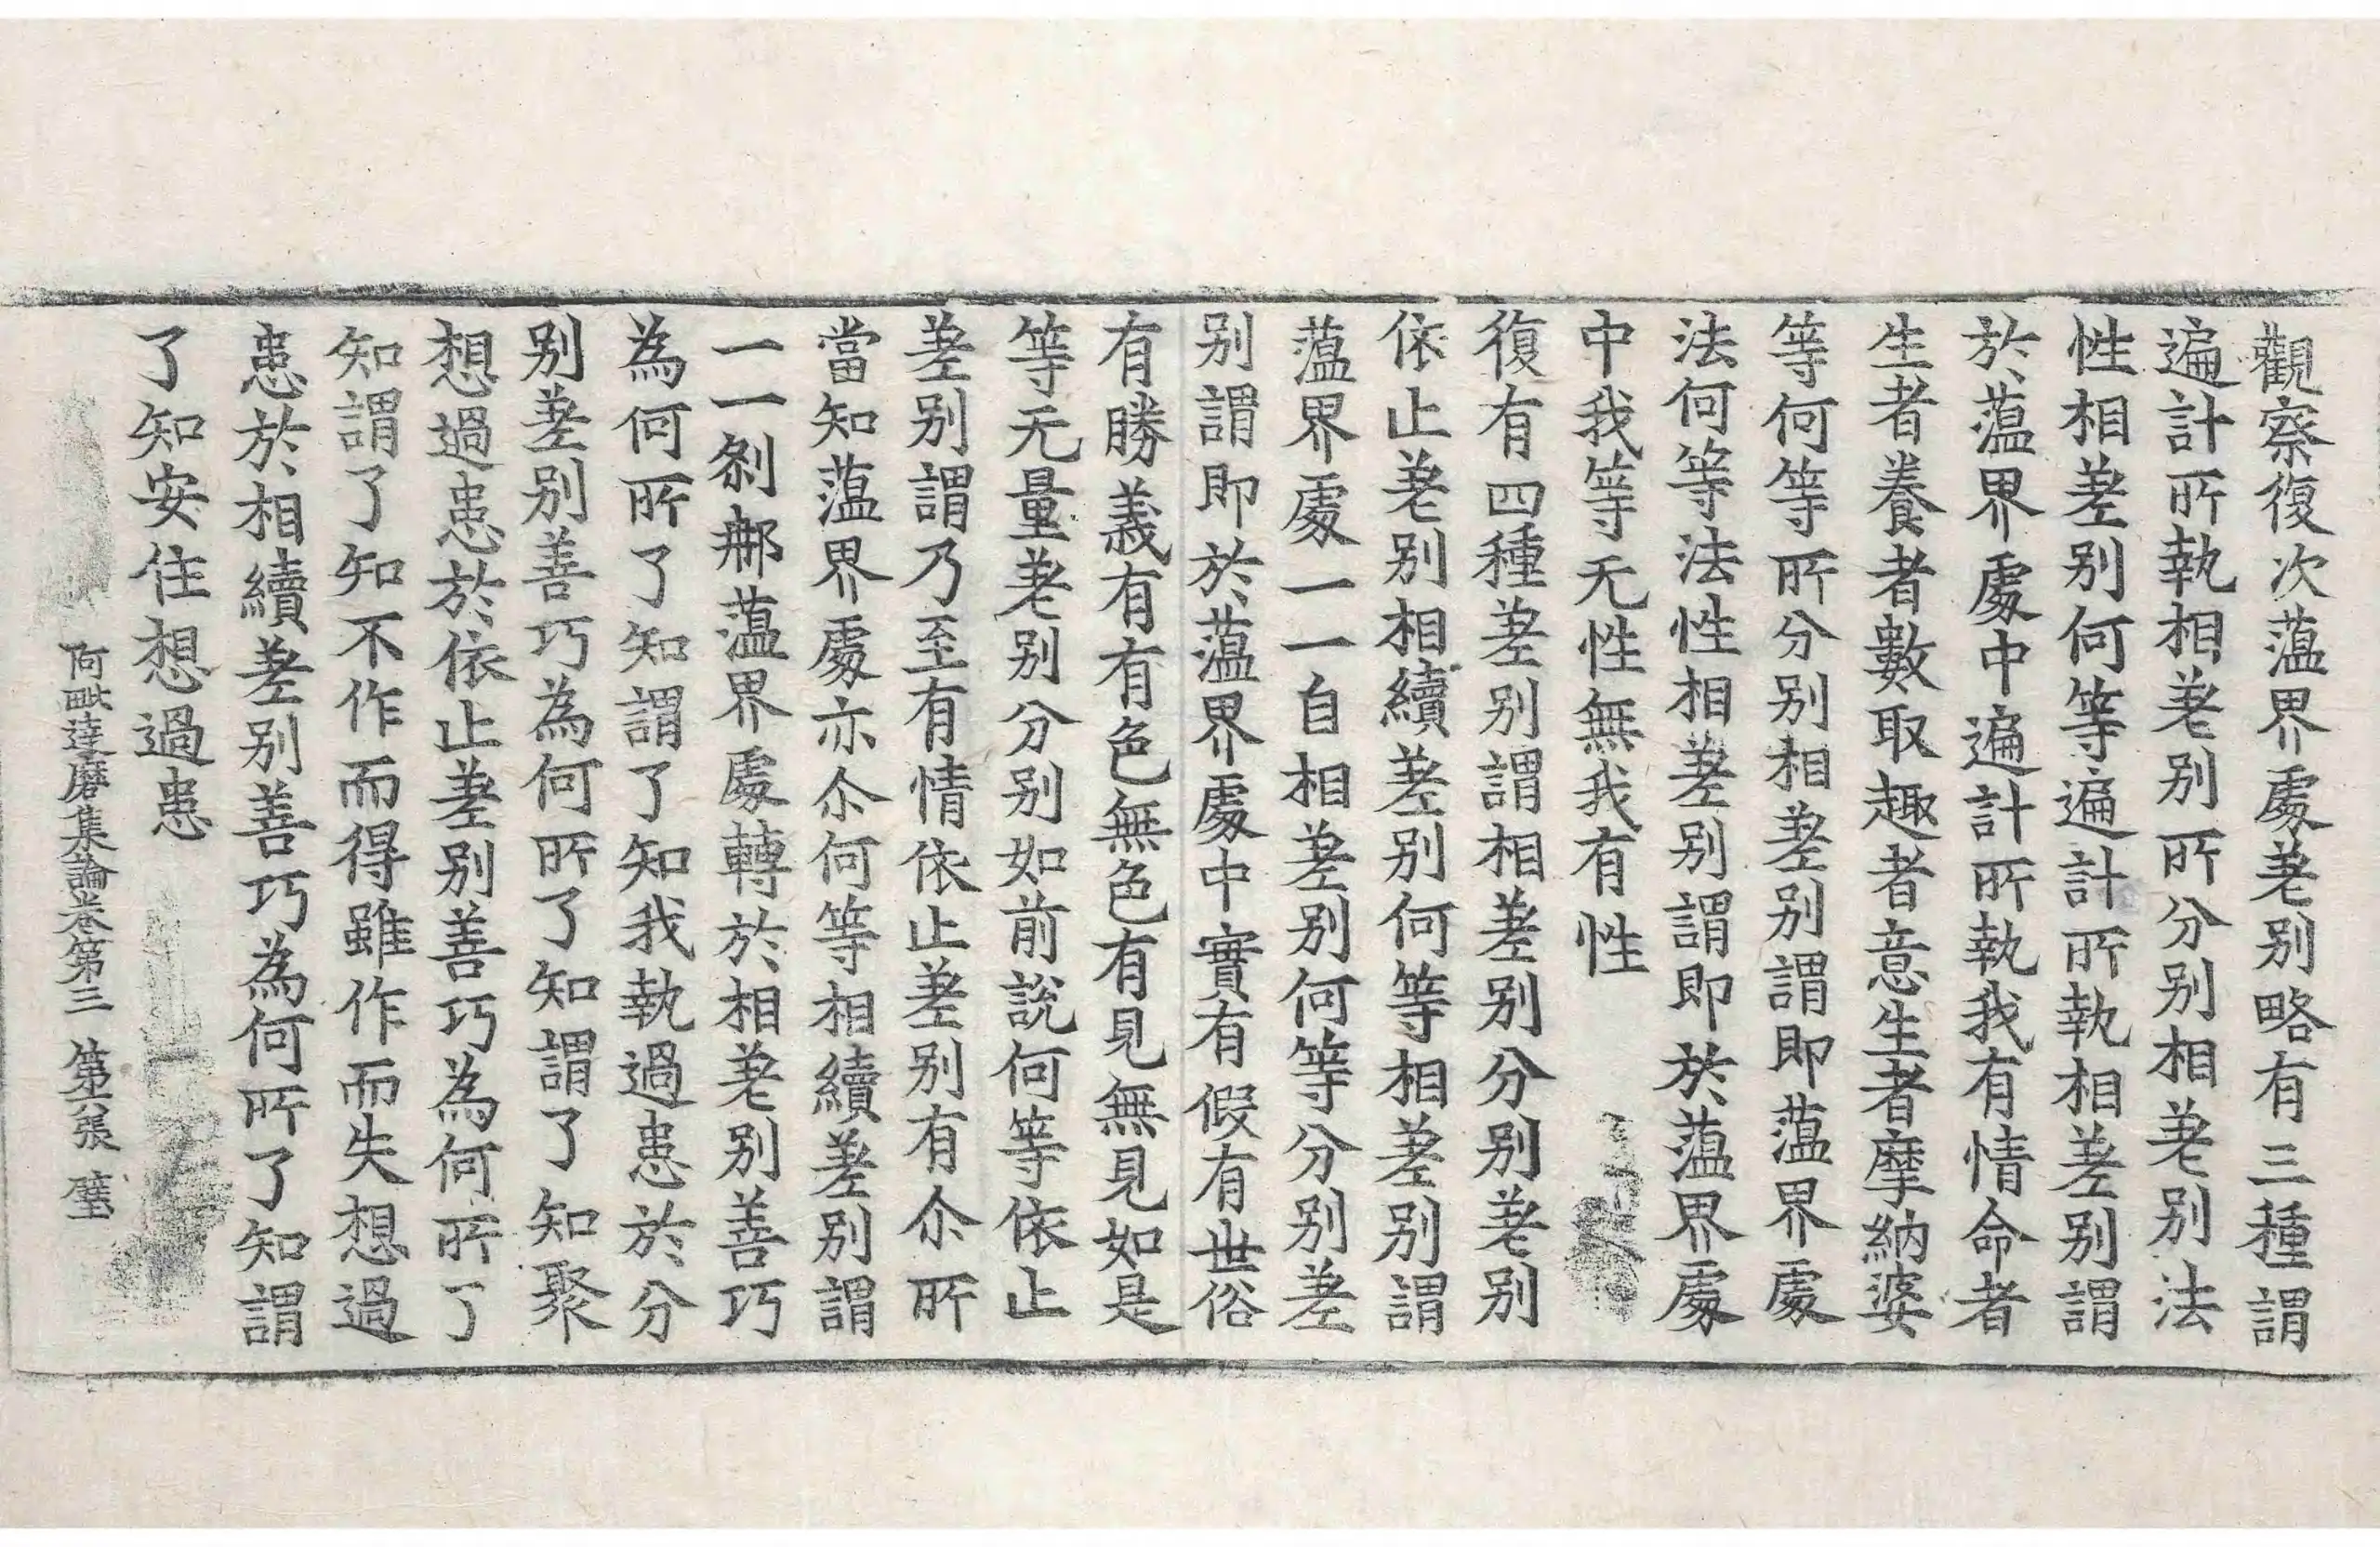 觀察復次薀界處差別略有三種謂
遍計所執相差別所分別相差別法
性相差別何等遍計所執相差別謂
於薀界處中遍計所執我有情命者
生者養者數取趣者意生者摩納婆
等何等所分別相差別謂即薀界處
法何等法性相差別謂即於薀界處
中我等无性無我有性
復有四種差別謂相差別分別差別
依止差別相續差別何等相差別謂
薀界處一一自相差別何等分別差
別謂即於薀界處中實有假有世俗
有勝義有有色無色有見無見如是
等无量差別分別如前說何等依止
差別謂乃至有情依止差別有尒所
當知薀界處亦尒何等相續差別謂
一一剎那薀界處轉於相差別善巧
為何所了知謂了知我執過患於分
別差別善巧為何所了知謂了知聚
想過患於依止差別善巧為何所了
知謂了知不作而得雖作而失想過
患於相續差別善巧為何所了知謂
了知安住想過患
阿毗達磨集論卷第三 第六張 璧